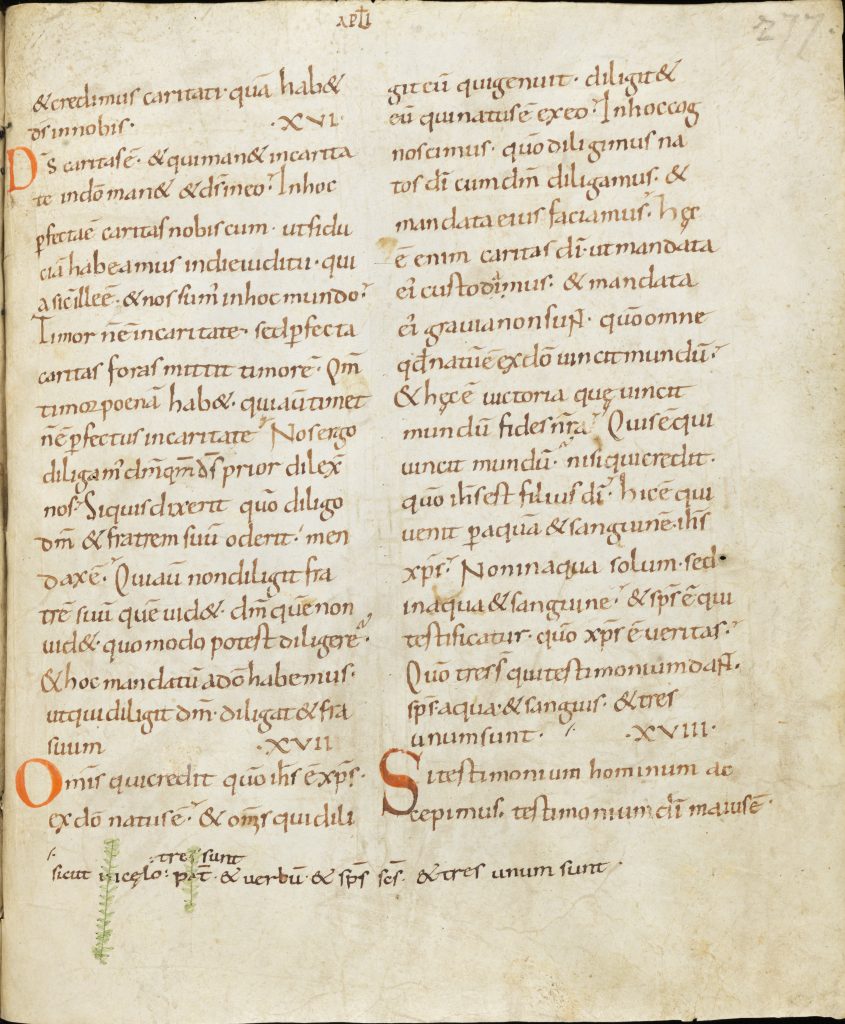 APLI
277
&credimus caritati· quā hab&
ds̄ innobis· ·XVI·
Ds̄ caritasē· &quiman& incarita
te indō man& &ds̄ ineo· Inhoc
pfectaē caritas nobis cum· utfidu
ciā habeamus indieiudicii· qui
a sic̄ illeē· &nos sum' inhoc mundo·
Timor nēinc̄aritate· sedpfecta
caritas foras mittit timorē· Qm̄
timor poenā hab&· quiaūtimet
nēpfectus incaritate Nosergo
diligam' dm̄ qm̄ ds̄ prior dilex̄
nos· Siquis dixerit quō diligo
dm̄ &fratrem suū oderit· men
daxē· Quiaū nondiligit fra
trē suū quē uid&· dm̄ quēnon
uid&· quomodo potest diligere·
&hoc mandatū adō habemus·
utqui diligit dm̄· diligat &fra
suum ·XVII
Omīs quicredit quō ih̄s ēxp̄s·
exdō natusē· &om̄s quidili
git eū quigenuit· diligit&
eū quinatusē exeo· Inhoccog
noscimus· quō diligimus na
tos dī cum dm̄ diligamus· &
mandata eius faciamus· hęc
ē enim caritas dī· ut mandata
ei' custodimus· &mandata
ei' grauia nonsuɴт· quō omne
qd̄ natūē exdō uincit mundū·
&hęcē uictoria quę uincit
mundū fides nr̄a Quis ē qui
uincit mundū· nisi quicredit·
quō ih̄s est filius dī· hic ē qui
uenit paquā &sanguinē· ih̄s
xp̄s· Noninaqua solum· sed
inaqua &sanguine· &sp̄s ē qui
testificatur· quō xp̄s ē ueritas·
Quō tres s̄ quitestimoniumdaɴт·
sp̄s· aqua· &sanguis· &tres
unumsunt· ·XVIII·
Si testimonium hominum ac
cepimus· testimonium dī maiusē·
tres sunt
sicut incęlo· pat̄· &uerbū· &sp̄s sc̄s· &tres unum sunt